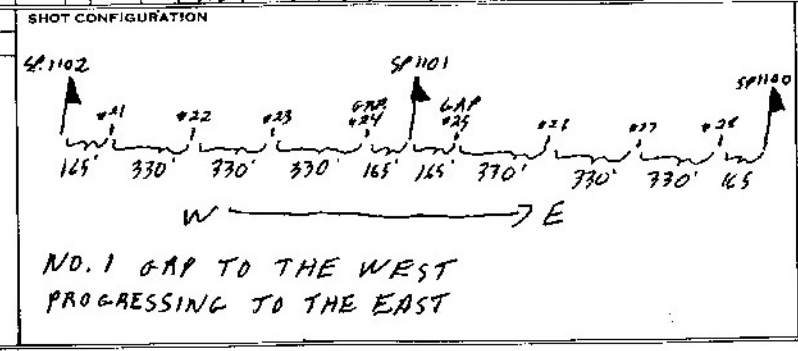 SHOT CONFIGURATION
SP.1102 SP1101 SP1100
GAP GAP
#21 #22 #23 #24 #25 #26 #27 #28
165' 330' 330' 330' 165' 165' 330' 330' 330' 165
W E
NO. 1 GAP TO THE WEST
PROGRESSING TO THE EAST